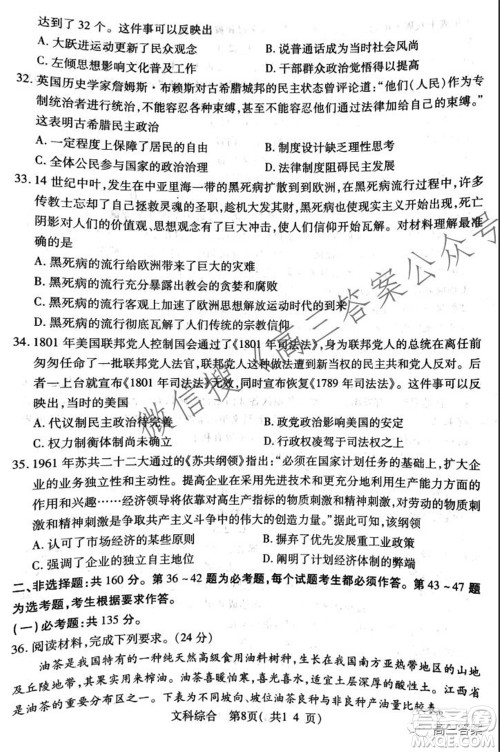 达到了 32 个。这件事可以反映出
A. 大跃进运动更新了民众观念
B. 说普通话成为当时社会风尚
C. 左倾思想影响文化普及工作
D. 干部群众政治觉悟得以提高
32. 英国历史学家詹姆斯·布赖斯对古希腊城邦的民主状态曾评论道:“他们(人民)作为专
制统治者进行统治,不能容忍各种束缚,甚至不能容忍法律加给自己多少的束缚。”
这表明古希腊民主政治
A. 一定程度上保障了居民的自由
B. 制度设计缺乏理性思考
C. 全体公民参与国家的政治治理
D. 法律制度阻碍民主发展
33. 14 世纪中叶,发生在中亚里海一带的黑死病扩散到到欧洲,在黑死病流行过程中,许多
传教士忘记了自己承担的拯救灵魂的圣职,趁机大发黑死病人的横财。黑死病的死亡
阴影对人们的价值观、思想观无不产生了巨大冲击,传统信仰开始瓦解。对材料理解最准
确的是
A. 黑死病的流行给欧洲带来了巨大的灾难
B. 黑死病的流行充分暴露出教会的黑暗
C. 黑死病的流行成了欧洲思想解放运动时代的到来
D. 黑死病的流行打破了人们传统的宗教信仰
34. 1801 年美国联邦党人控制国会通过了《1801 年司法法》,身为联邦党人的总统在离任前
匆匆任命了一批联邦党人法官,联邦党人这种做法遭到新当权的民主共和党人的回击。后
者一上台就宣布《1801 年司法法》无效,同时宣布恢复《1789 年司法法》。这件事可以反映
出,当时的美国
A. 代议制民主形式大于内容
B. 政党政治影响美国的安定
C. 权力制衡体制尚未确立
D. 行政权凌驾于司法权之上
35. 1961 年苏共二十二大通过的《苏共纲领》指出:“必须在国家计划任务的基础上,扩大企
业的业务独立性和主动性。提高企业在采用先进技术和更充分地利用生产能力方面
的作用和兴趣……经济领导将依靠对高生产指标的物质刺激和精神刺激,对劳动的物质刺
激和精神刺激是争取共产主义斗争中的伟大创造力量。”据此可知,该纲领
A. 认可了市场经济的经济原则
B. 摒弃了高度集中的经济政策
C. 强调了企业的独立自主地位
D. 阐明了计划经济的重要价值
二、非选择题:共 160 分。第 36~42 题为必考题,每个试题考生都必须作答。第 43~47 题
为选考题,考生根据要求作答。
(一)必考题:共 135 分。
36. 阅读材料,完成下列要求。(24 分)
油茶是我国特有的一种纯天然高级食用油料树种,生长在我国南方亚热带地区的山地
及丘陵地带,俗称“长寿油”。油茶喜暖怕寒,喜光照,适宜土层深厚的酸性土壤。江西省
是油茶的重要分布区之一,油茶产量大,但与非产区相比较,
文科综合 第8页( 共1 4 页)
微信搜《高三答案公众号
高三答案